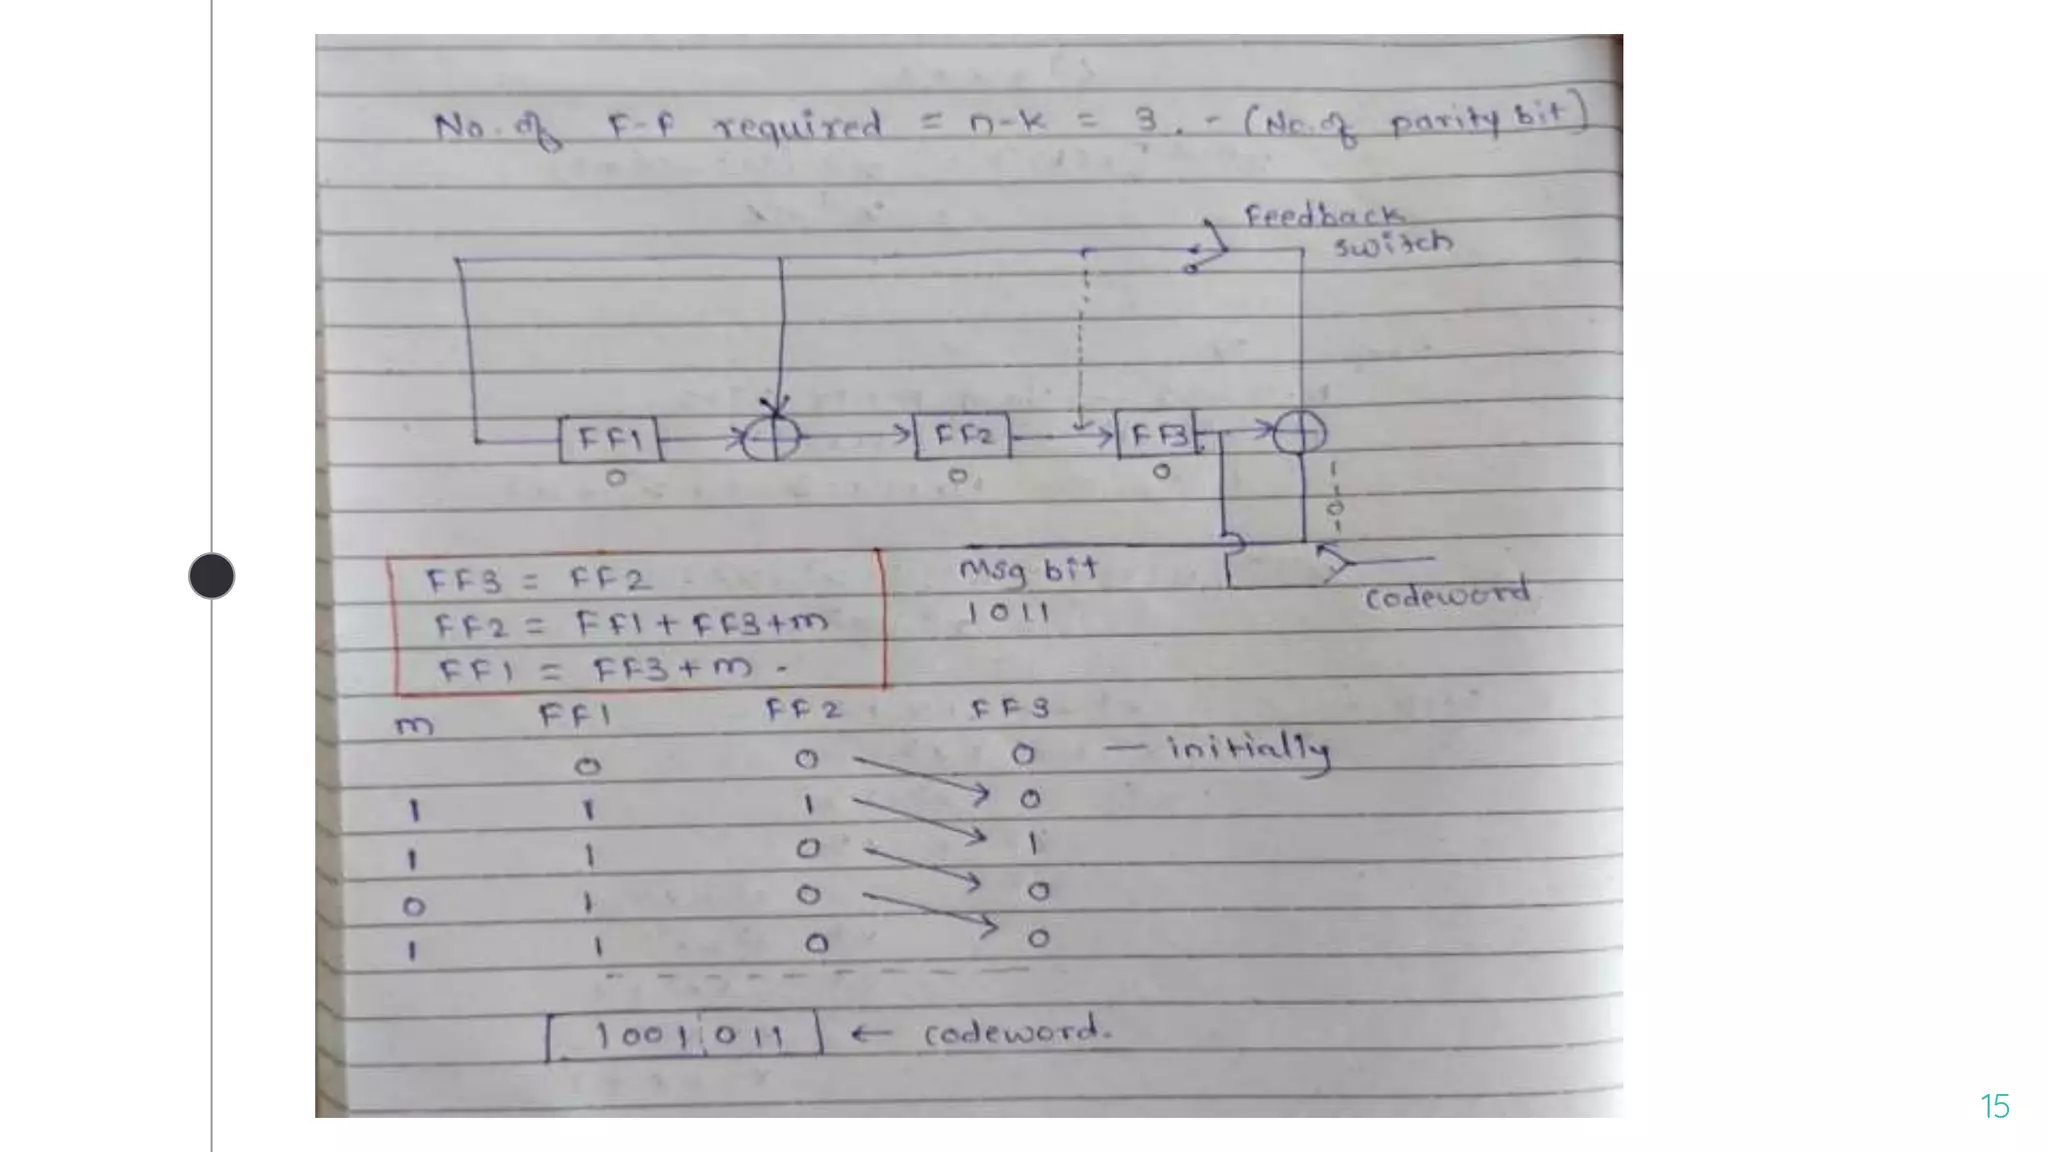 No. of F-F required = n-k = 3. - (No. of parity bit)
Feedback
switch
FF1 FF2 FF3
0 0 0
1
1
0
1
Msg bit
1011
codeword
FF3 = FF2
FF2 = FF1 + FF3 + m
FF1 = FF3 + m -
m FF1 FF2 FF3
0 0 0 — initially
1 1 1 0
1 1 0 1
0 1 0 0
1 1 0 0
1001011 ← codeword.
15